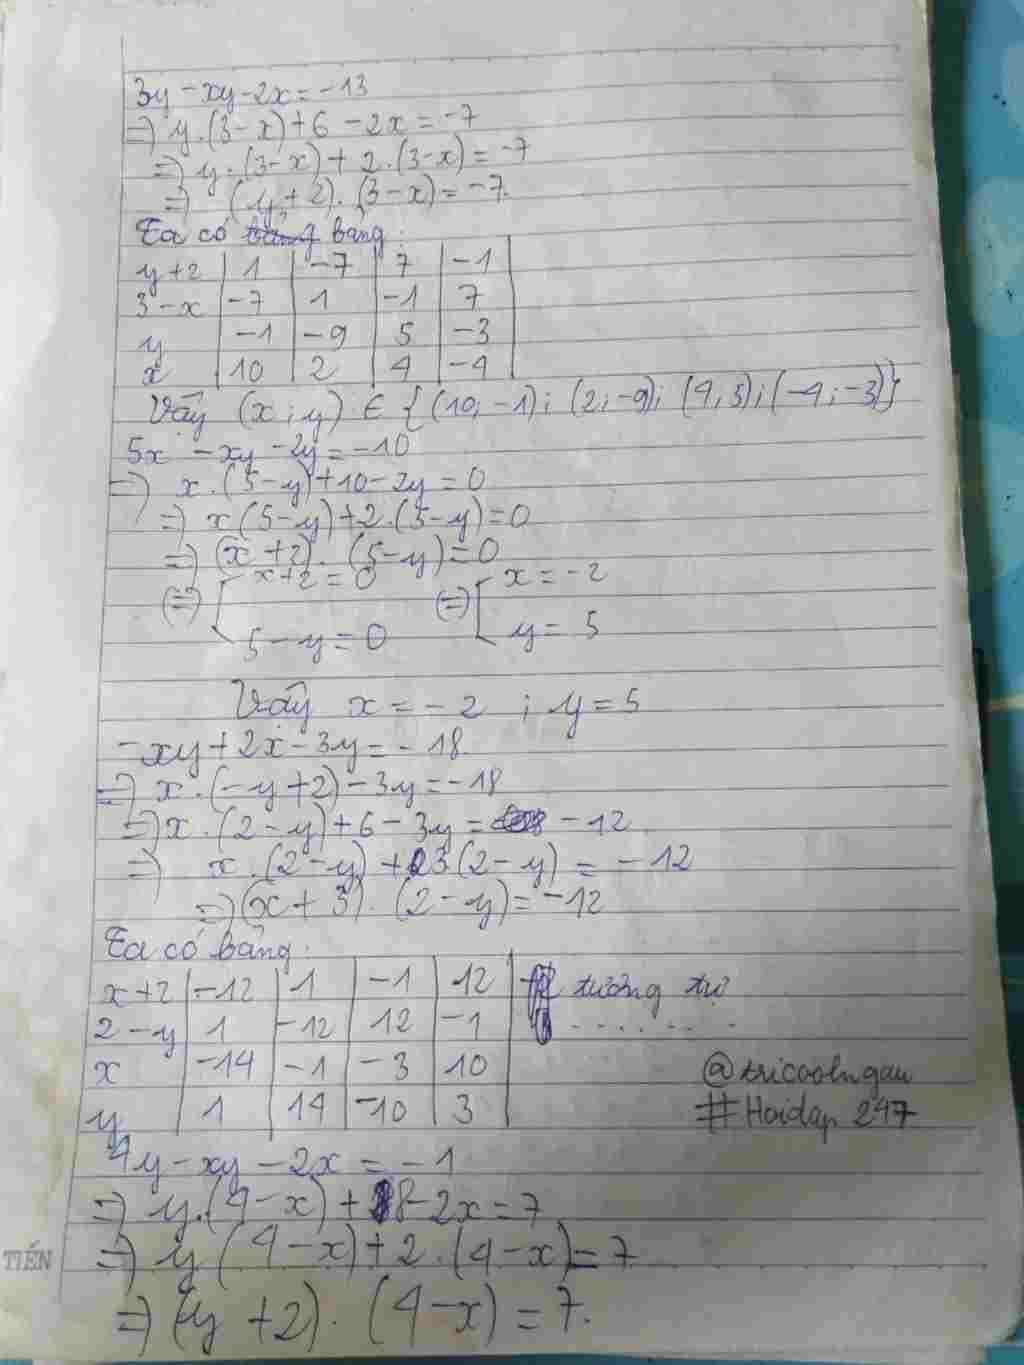 3y - xy - 2x = -13
=> y.(3-x) + 6 - 2x = -7
=> y.(3-x) + 2.(3-x) = -7
=> (y+2).(3-x) = -7.
Ta có bảng:
y+2 | 1 | -7 | 7 | -1
3-x | -7 | 1 | -1 | 7
y | -1 | -9 | 5 | -3
x | 10 | 2 | 4 | -4
Vậy (x;y) ∈ {(10;-1); (2;-9); (4;5); (-4;-3)}
5x - xy - 2y = -10
=> x.(5-y) + 10 - 2y = 0
=> x(5-y) + 2.(5-y) = 0
=> (x+2).(5-y) = 0
(=) [ x+2 = 0 (=) [ x = -2
5-y = 0 y = 5
Vậy x = -2 ; y = 5
-xy + 2x - 3y = -18
=> x.(-y+2) - 3y = -18
=> x.(2-y) + 6 - 3y = -12
=> x.(2-y) + 3(2-y) = -12
=> (x+3).(2-y) = -12
Ta có bảng:
x+2 | -12 | 1 | -1 | 12 | tương tự
2-y | 1 | -12 | 12 | -1 | - . . . . . - . -
x | -14 | -1 | -3 | 10
y | 1 | 14 | -10 | 3
@tricoolngau
#Hoidap 247
4y - xy - 2x = -1
=> y.(4-x) + 8 - 2x = 7
=> y(4-x) + 2.(4-x) = 7
=> (y+2).(4-x) = 7.
TIẾN